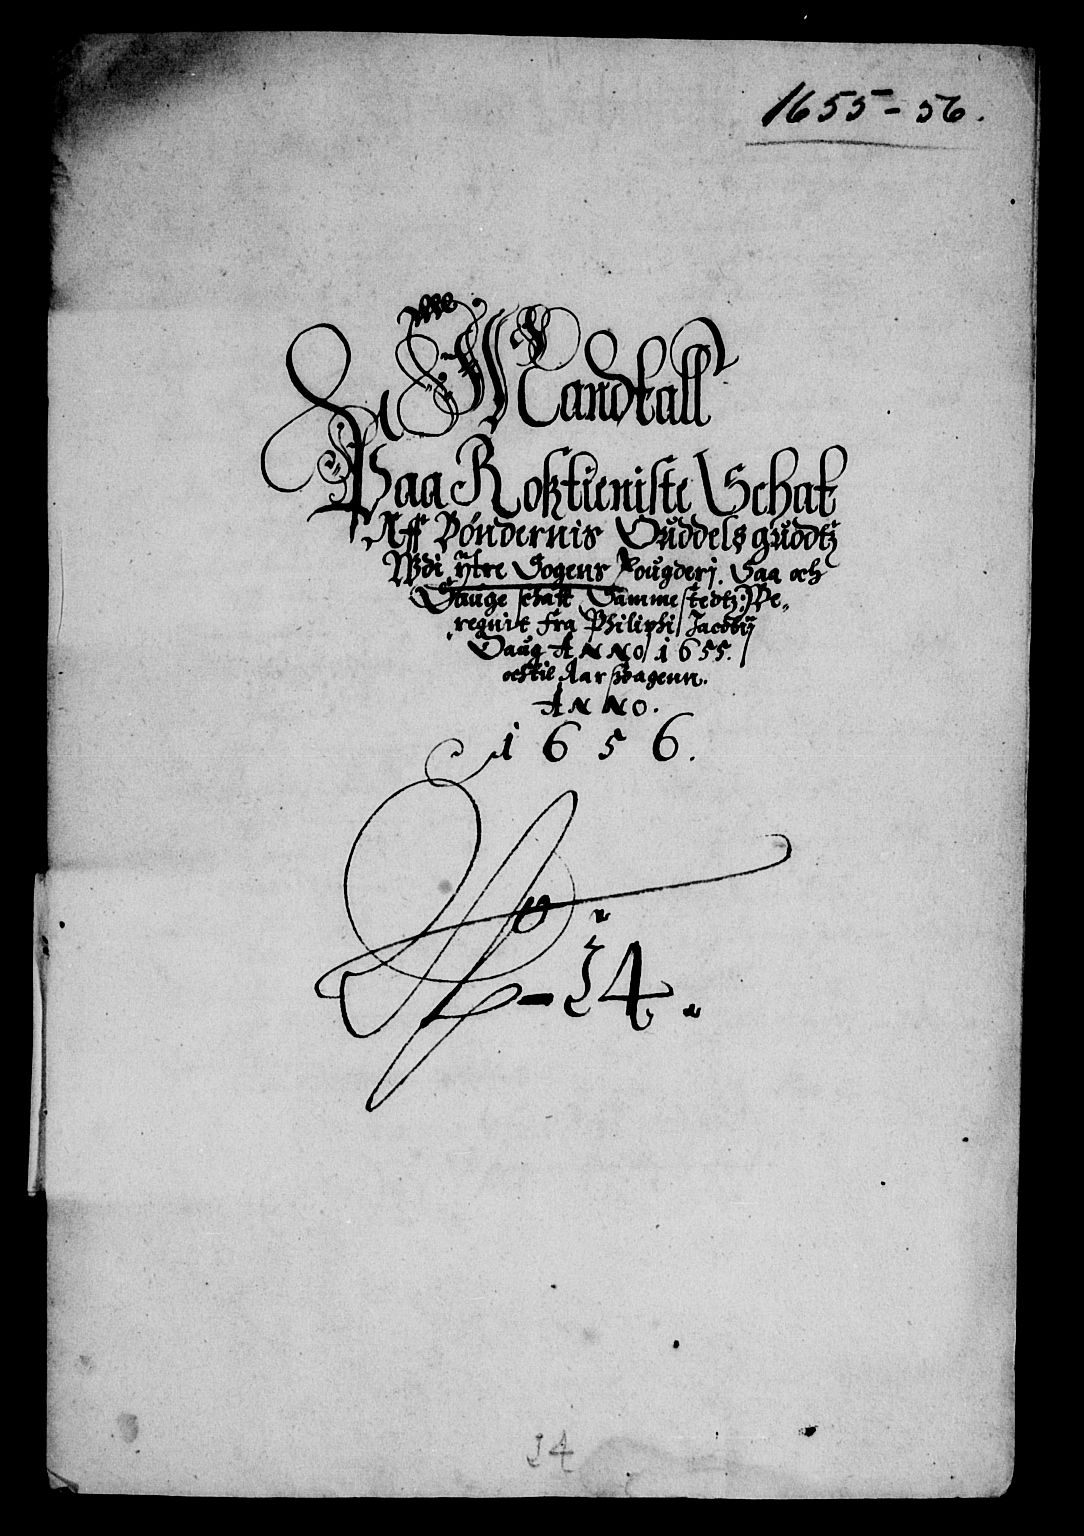 1655-56.
Mandtall
Paa Roßtieniste Schat
Aff Böndernis Ouddels guodtz
Wdi ÿtre Sogens Fougderj. Saa och
Sauge schatt Sammestedtz: Be-
regnit fra Philiphi Jacobij
Daug ANNO 1655.
och til Aarsdagenn.
ANNO.
1656.
N - 14.
14